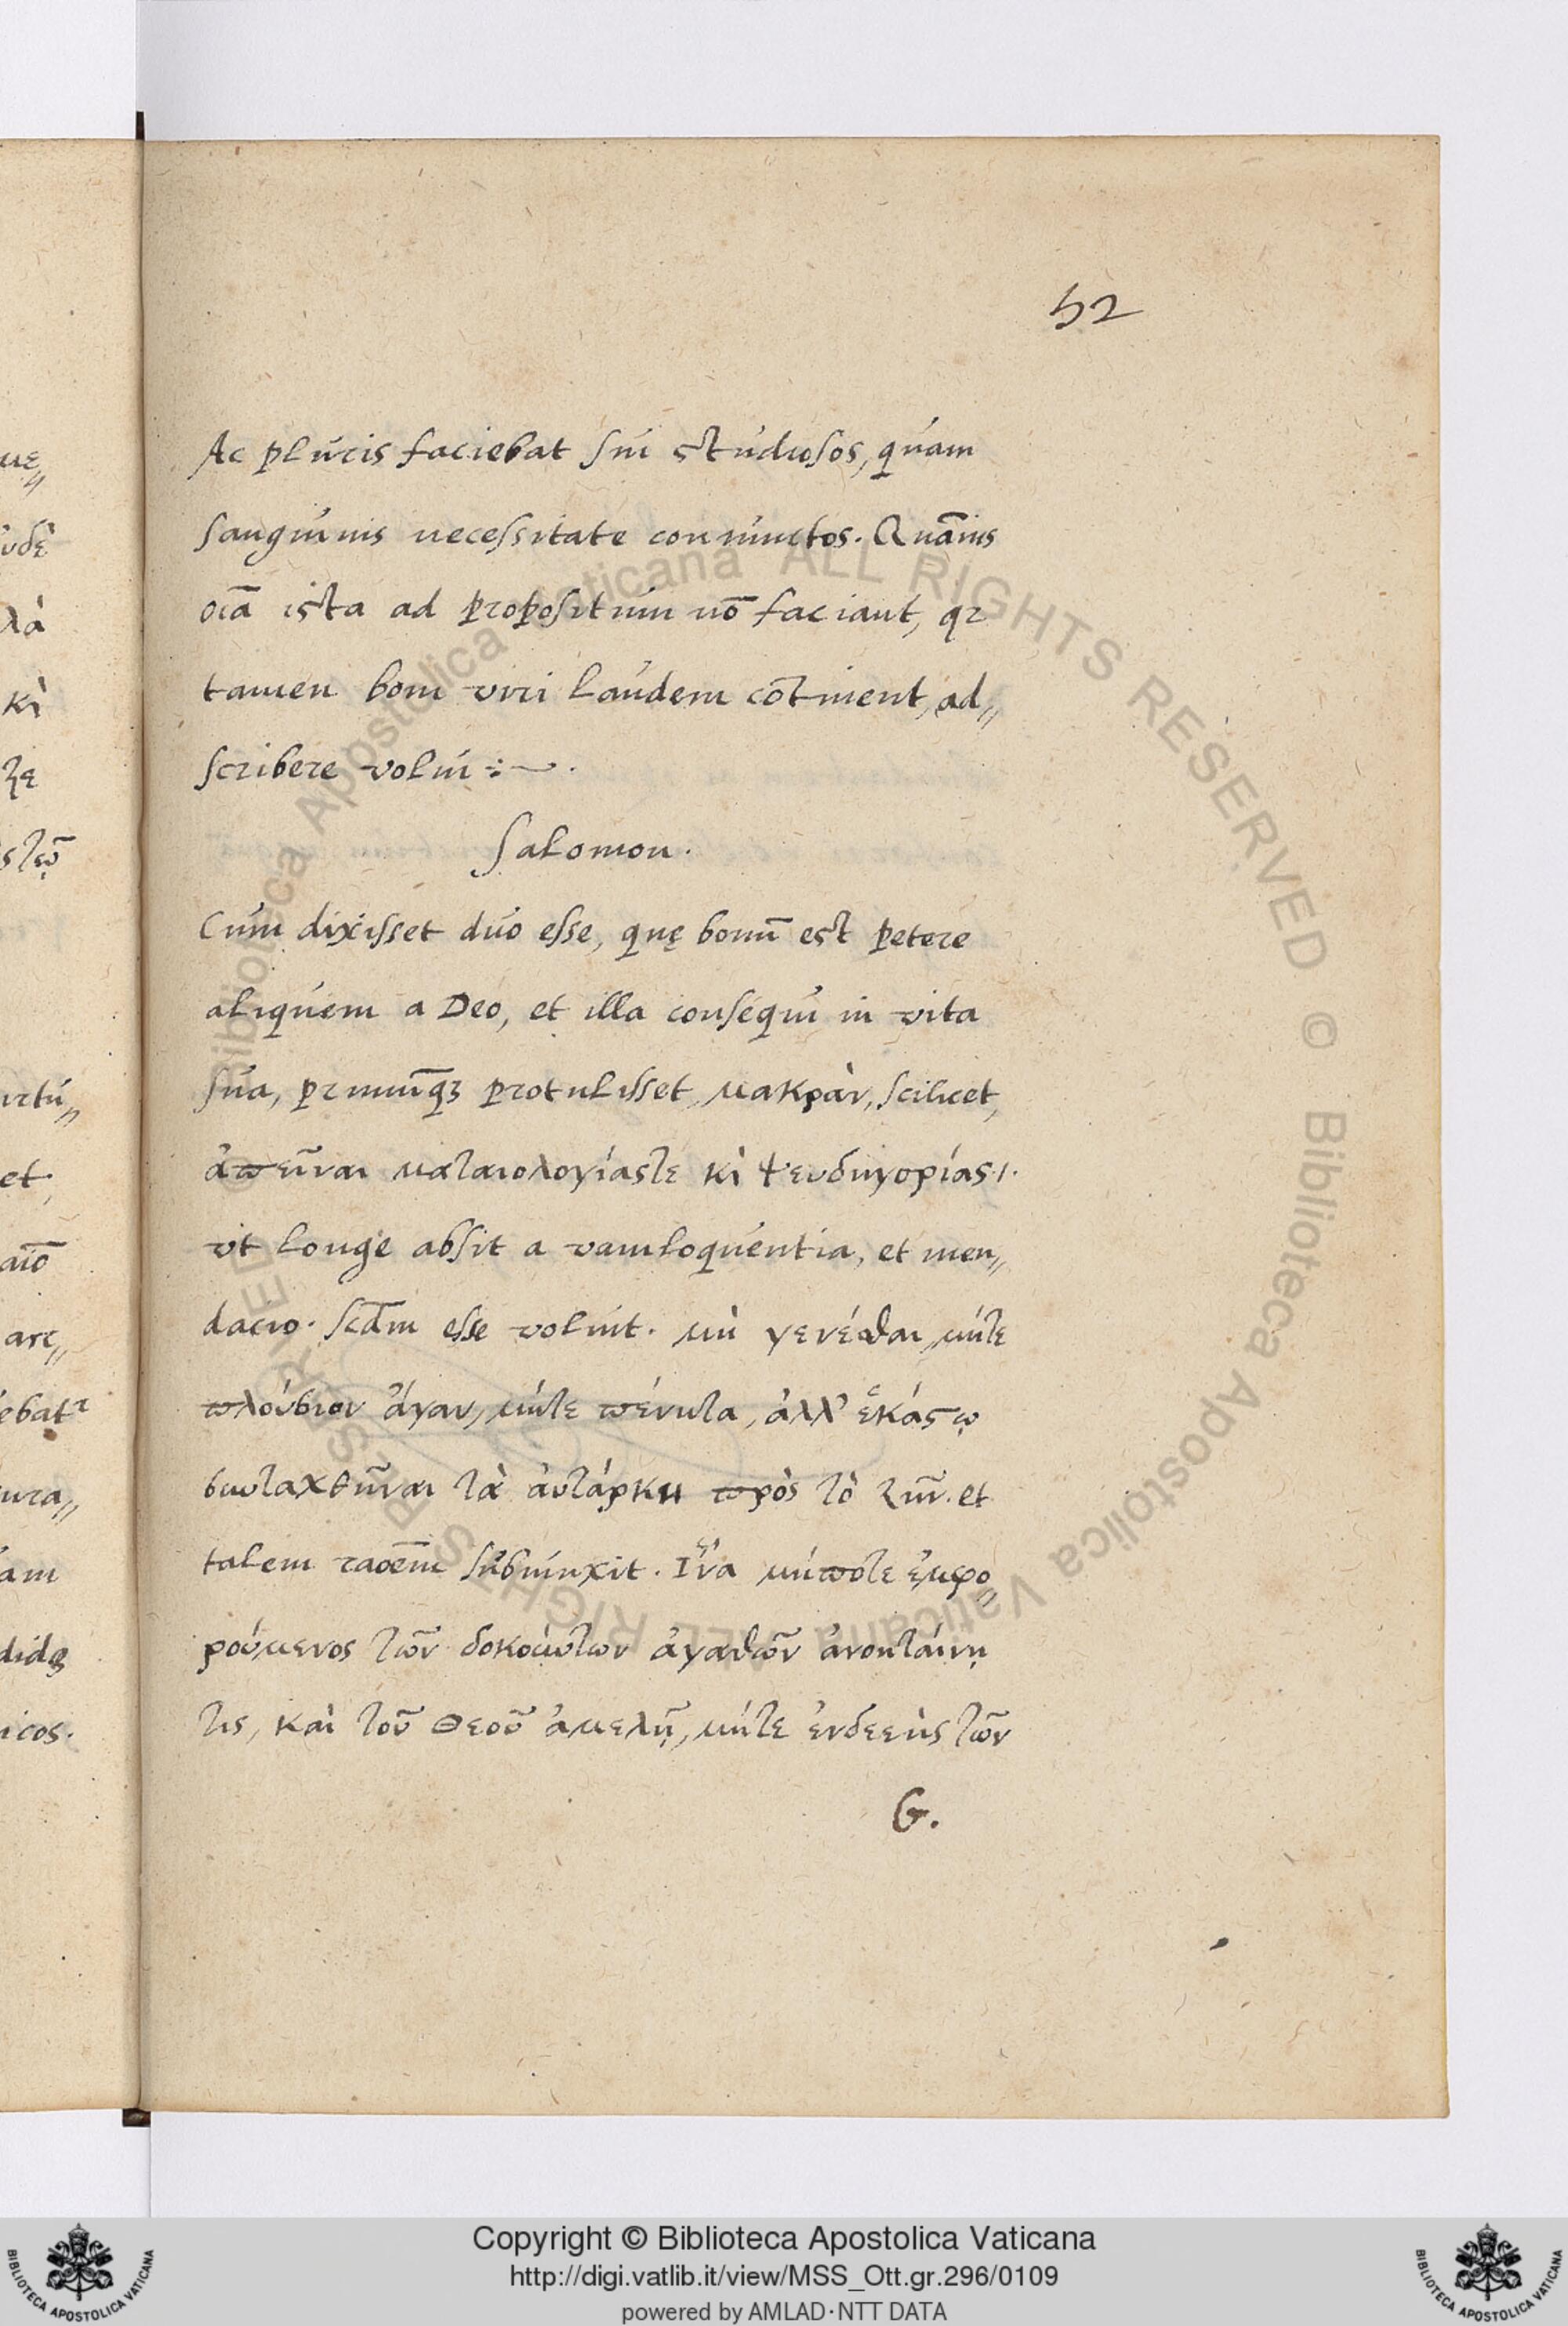 52
Ac pluris faciebat sui studiosos, quam
sanguinis necessitate coniunctos. Quāuis
oīa ista ad propositum nō faciant, qr
tamen boni viri laudem cōtinent, ad〃
scribere volui ÷~.
Salomon.
Cum dixisset duo esse, quę bonū est petere
aliquem a Deo, et illa consequi in vita
sua, primūqȝ protulisset, μακρὰν, scilicet,
ἀπεῖναι ματαιολογίαστε κὶ ψευδηγορίας.ι.
vt longe absit a vaniloquentia, et men〃
dacio. scd̄m esse voluit. μὴ γενέσθαι, μήτε
πλούσιον ἄγαν, μήτε πένητα, ἀλλ' ἑκάστῳ
συνταχθῆναι τὰ ἀυτάρκη πρὸς τὸ ζῆν. et
talem raōem subiunxit. Ἵνα μήποτε ἐμφο〃
ρούμενος τῶν δοκούντων ἀγαθῶν ἀνοηταίνῃ
τις, καὶ τοῦ Θεοῦ ἀμελῇ, μήτε ἐνδεεὴς τῶν
G.
με〃
υδὲ
λὰ
κὶ
et,
aīo
arc〃
ebatr
ura〃
am
icos.
Copyright © Biblioteca Apostolica Vaticana
http://digi.vatlib.it/view/MSS_Ott.gr.296/0109
powered by AMLAD·NTT DATA
BIBLIOTECA APOSTOLICA VATICANA
BIBLIOTECA APOSTOLICA VATICANA
© Biblioteca Apostolica Vaticana ALL RIGHTS RESERVED © Biblioteca Apostolica Vaticana ALL RIGHTS RESERVED